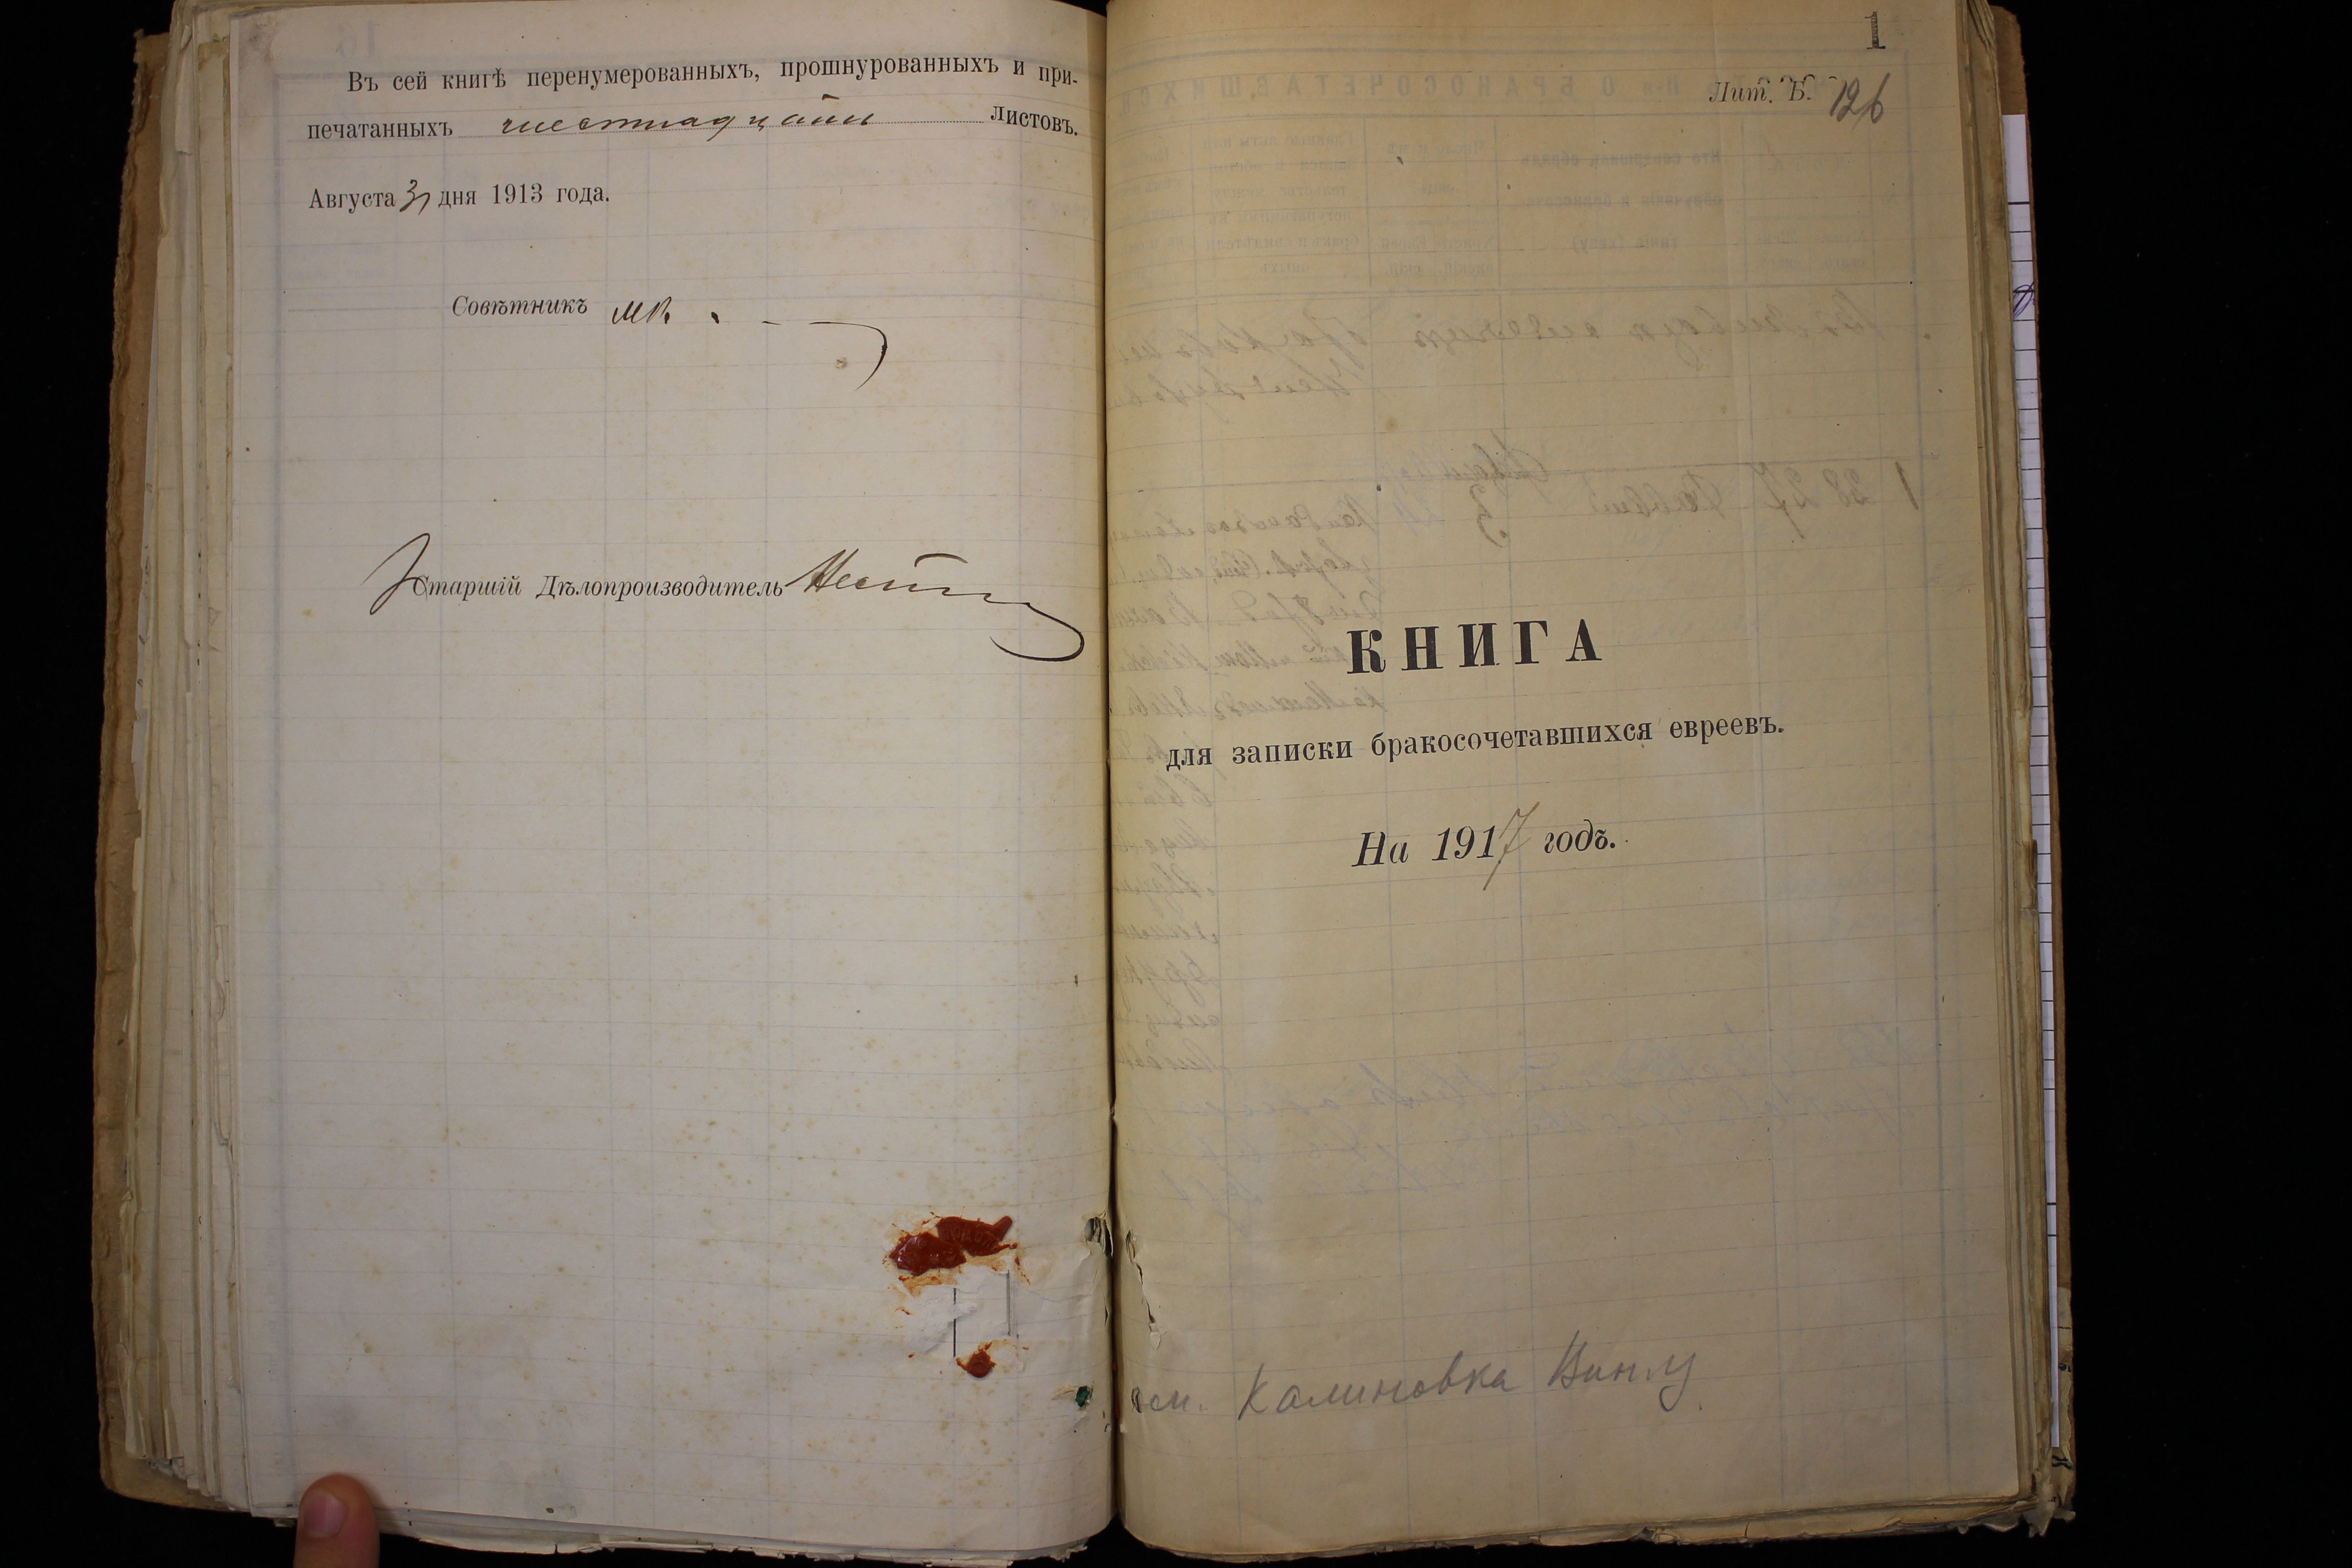 Въ сей книгѣ перенумерованныхъ, прошнурованныхъ и при-
печатанныхъ шестнадцать листовъ.
Августа 31 дня 1913 года.
Совѣтникъ
Старшій Дѣлопроизводитель
1
Лит. Б.
126
КНИГА
для записки бракосочетавшихся евреевъ.
На 1917 годъ.
м. Калиновка Вин. у